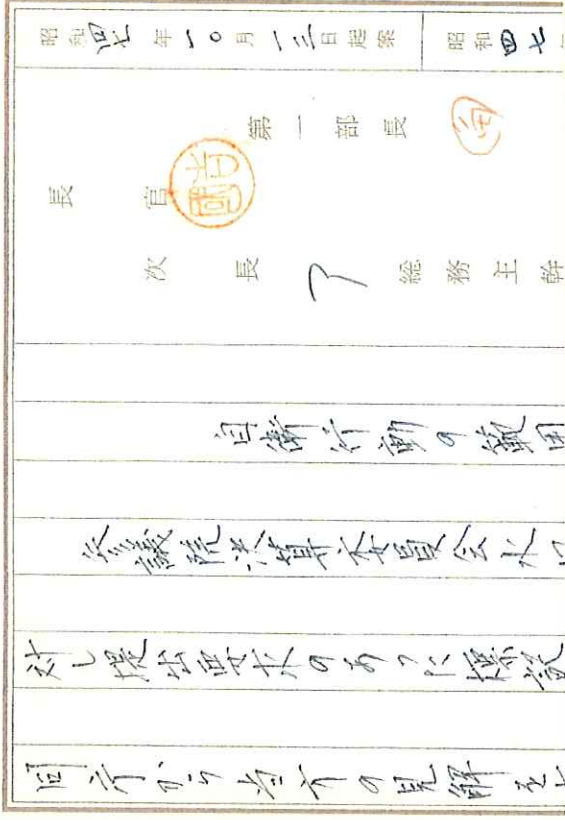 昭和四七年一〇月一三日起案
昭和四七年
第一部長
長官
吉國
次長
総務主幹
自衛行動の範囲
参議院決算委員会水口
対し提出要求のあつた標記
同庁から当方の見解を